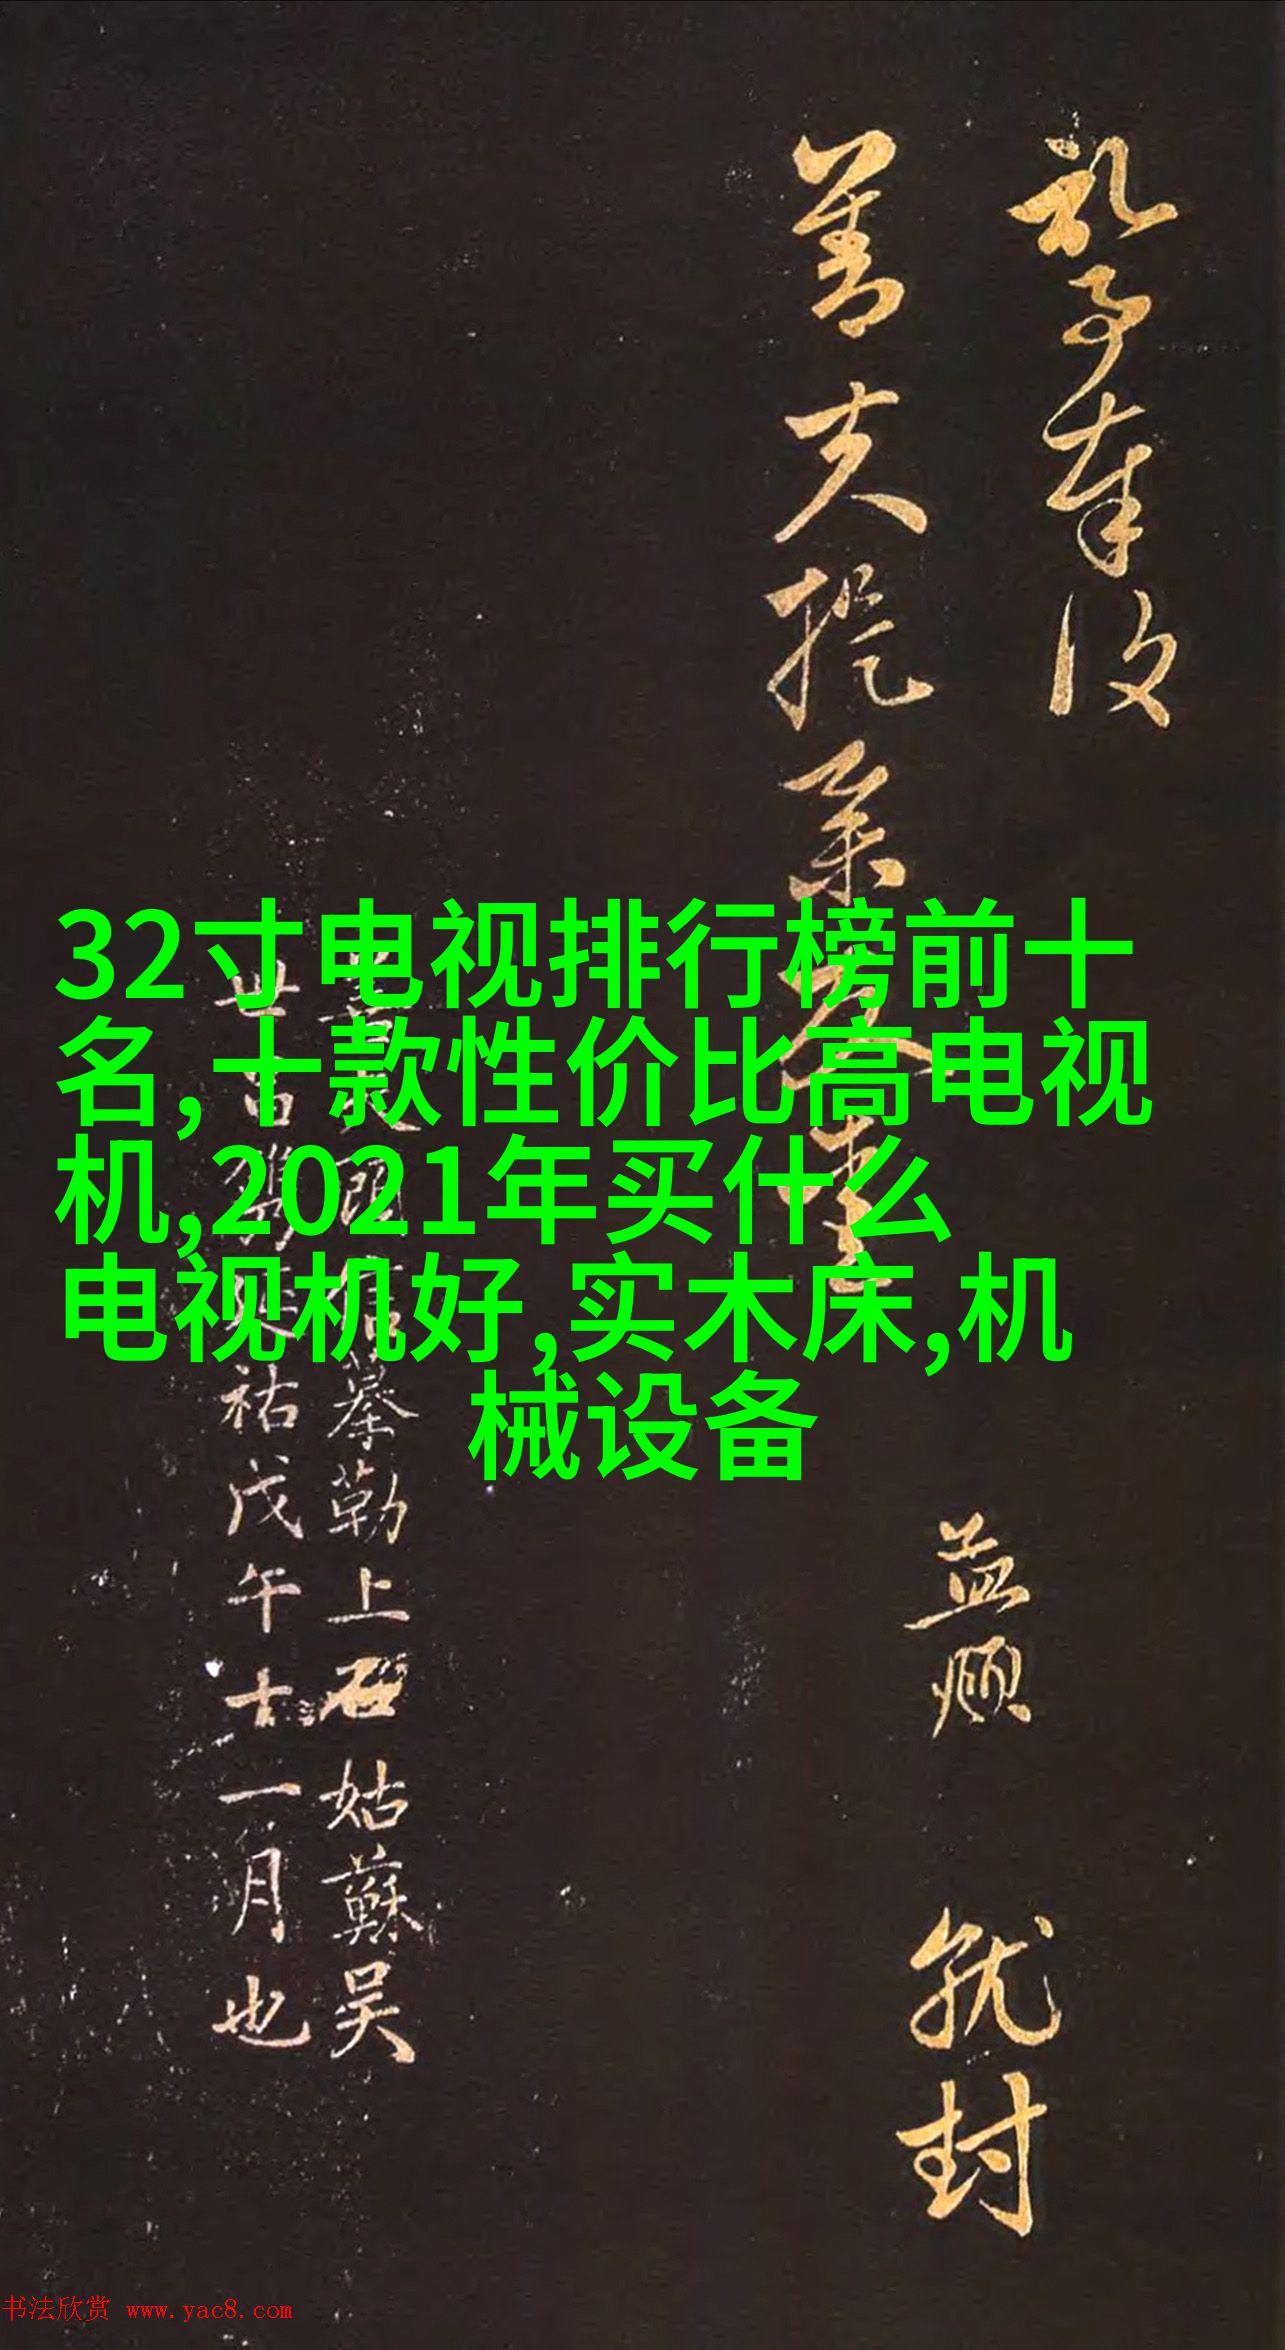 礼事奉後
善夫提
益顺
就封
摹勒上石姑蘇吴
祐戊午十一月也
32寸电视排行榜前十
名,十款性价比高电视
机,2021年买什么
电视机好,实木床,机
械设备
书法欣赏 www.yac8.com